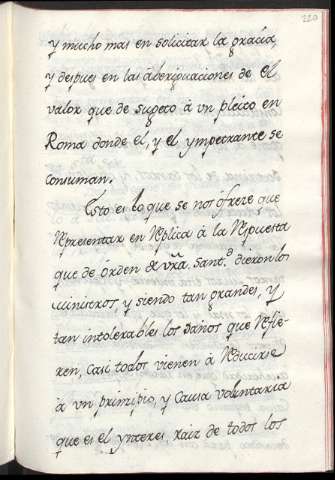 220
y mucho mas en solicitar la gracia,
y despues en las aberiguaciones de el
valor que de sugeto à vn pleito en
Roma donde el, y el ympetrante se
consuman.
Esto es lo que se nos ofreze que
representar en replica à la respuesta
que de órden de vra. Santd. dieron los
ministros, y siendo tan grandes, y
tan intolerables los daños que refie-
ren, casi todos vienen à reducirse
à un principio, y causa voluntaria
que es el ynteres, raiz de todos los